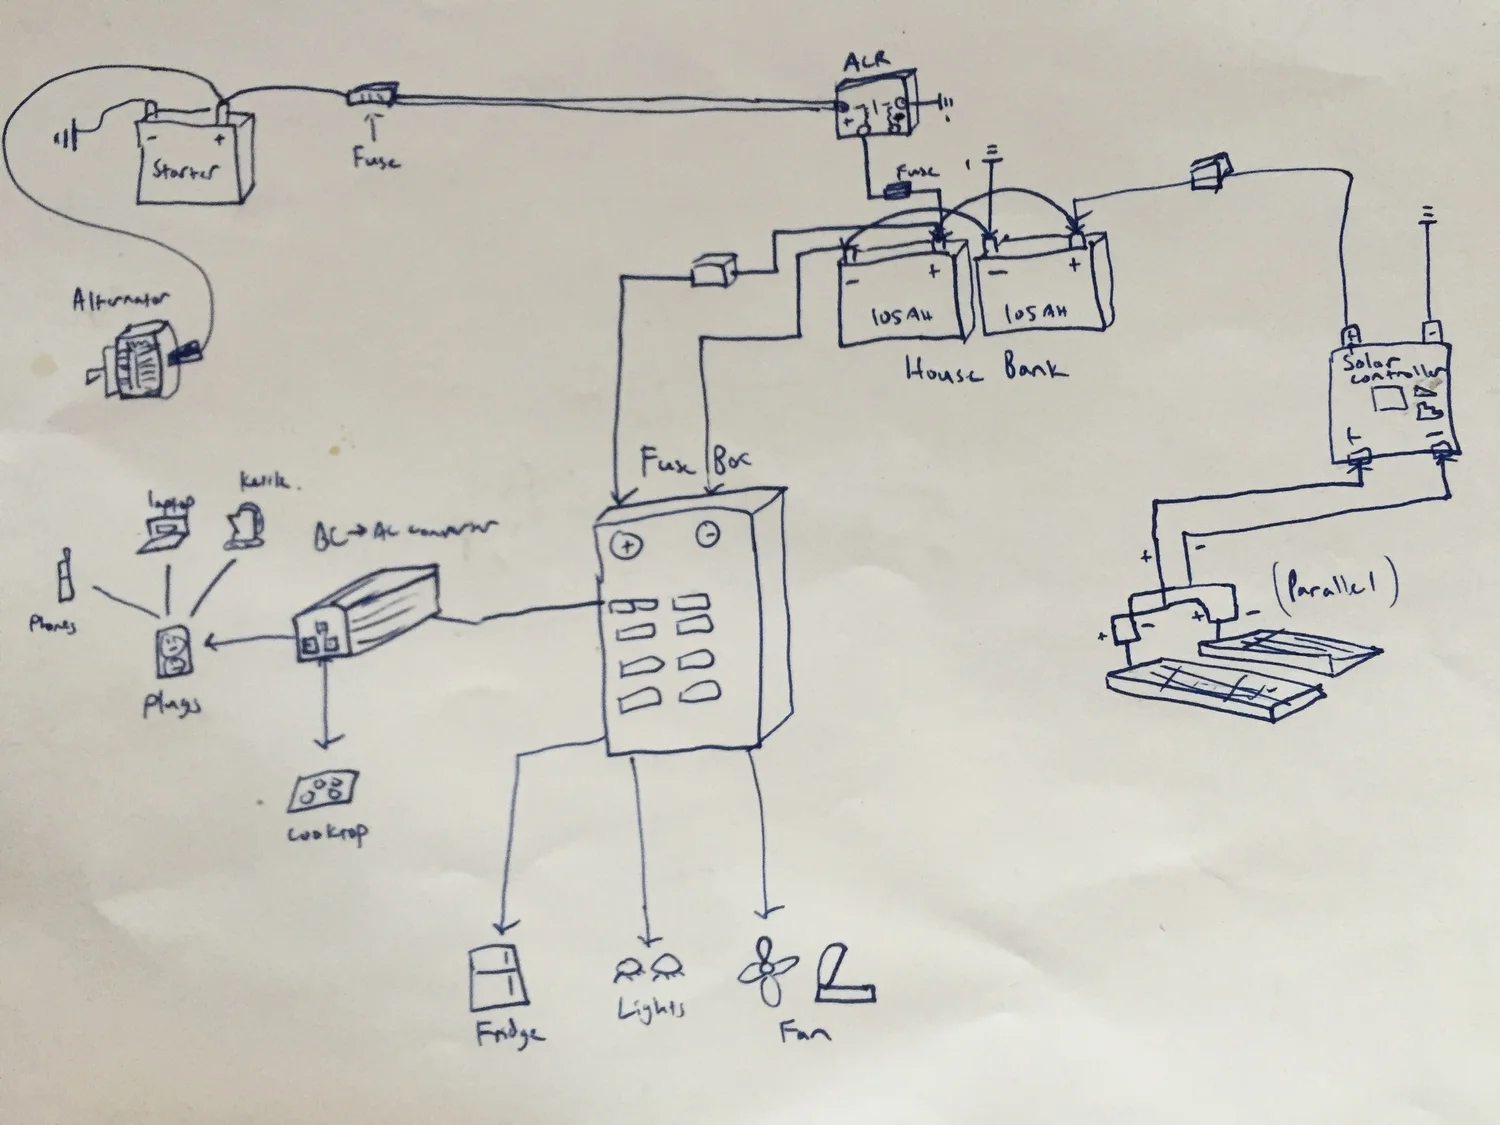 ACR
Starter
- +
Fuse
Fuse
+ -
Alternator
- +
105AH
- +
105AH
House Bank
+ -
Solar
controller
+ -
Fuse Box
+ -
laptop
DC→AC
Phones
Plugs
+ -
(Parallel)
+ - + -
cooktop
Fridge
Lights
Fan